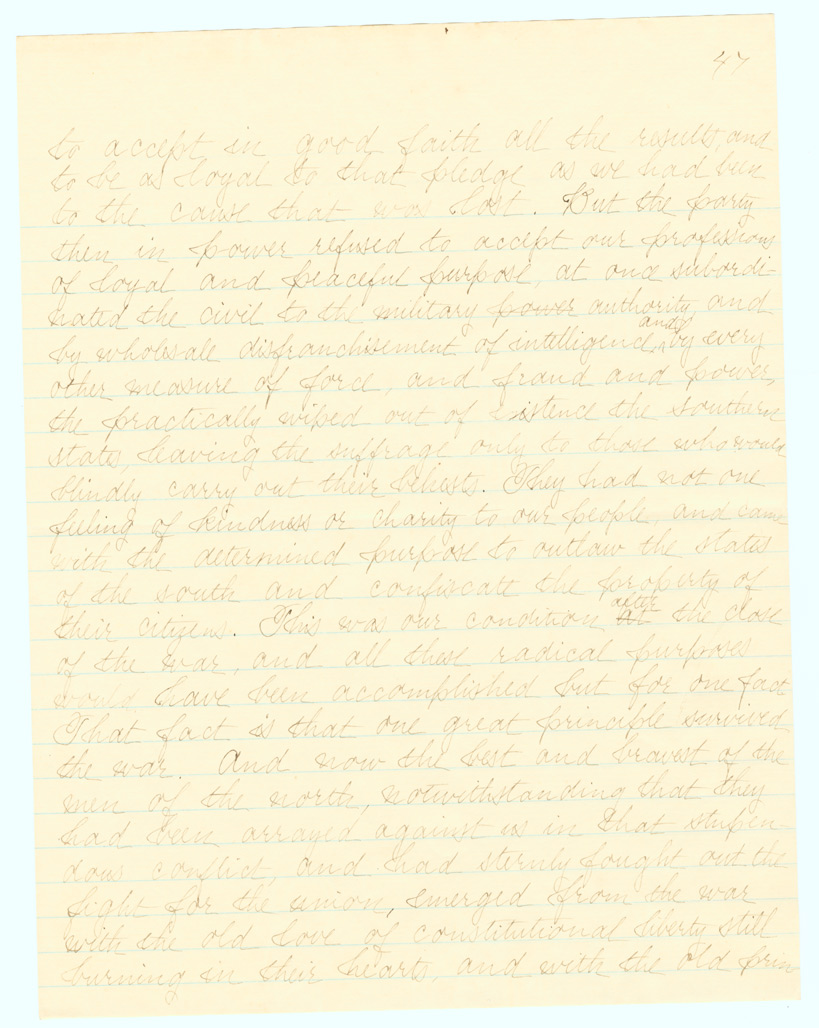 47
to accept in good faith all the results, and
to be as loyal to that pledge as we had been
to the cause that was lost. But the party
then in power refused to accept our professions
of loyal and peaceful purpose, at once subordi-
nated the civil to the military power authority, and
by wholesale disfranchisement of intelligence, and by every
other measure of force, and fraud and power,
the practically wiped out of existence the southern
states, leaving the suffrage only to those who would
blindly carry out their behests. They had not one
feeling of kindness or charity to our people, and came
with the determined purpose to outlaw the states
of the south and confiscate the property of
their citizens. This was our condition at after the close
of the war, and all these radical purposes
would have been accomplished but for one fact
That fact is that one great principle survived
the war. And now the best and bravest of the
men of the north, notwithstanding that they
had been arrayed against us in that stupen-
dous conflict, and had sternly fought out the
fight for the union, emerged from the war
with the old love of constitutional liberty still
burning in their hearts, and with the old prin